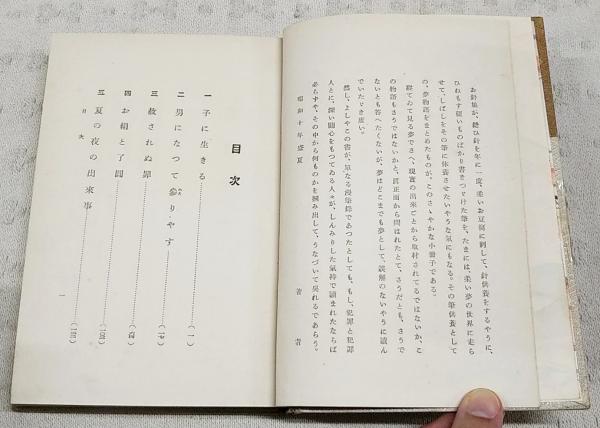 お針娘が、縫ひ針を年に一度、柔いお豆腐に刺して、針供養をするやうに、
ひねもす硬いものばかり書きつゞけた筆を、たまには、柔い夢の世界に走ら
せて、しばしをその筆に休養させたいやうな氣にもなる。その筆供養として
の、夢物語をまとめたものが、このさゝやかな小冊子である。
寢てゐて見る夢でさへ、現實の出來ごとから取材されてるではないか、こ
の物語もさうではないかと、眞正面から問はれたとて、さうだとも、さうで
ないとも答へたくないが、夢はどこまでも夢として、誤解のないやうに讀ん
でいたゞき度い。
然し、よしやこの書が、單なる漫筆錄であつたとしても、もし、犯罪と犯罪
人とに、深い關心をもつてゐる人々が、しんみりした氣持で讀まれたならば
必らずや、その中から何ものかを摑み出して、うなづいて吳れるであらう。
昭和十年盛夏
著者
目次
一 子に生きる
二 男になつて參りやす
三 赦されぬ罪
四 お絹と了圓
五 夏の夜の出來事
目次
一